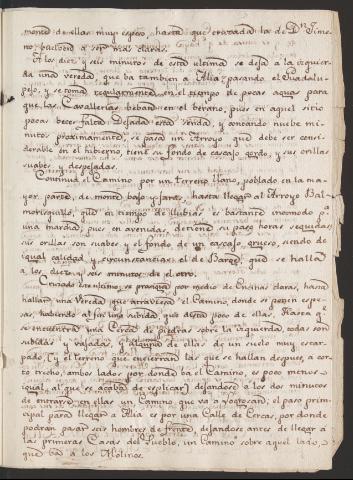 monte de ellas muy espeso, hasta que atravesada la de Dn. Xime-
no, buelben a ser mas claras.
A los diez y seis minutos de esta ultima se deja a la izquier-
da una vereda que ba tambien a Alia, pasando el Guadalu-
pejo, y se toma regularmente en el tiempo de pocas aguas para
que las Cavallerias beban en el berano, pues en aquel sitio
pocas beces falta. Dejada esta senda, y contando nuebe mi-
nutos proximamente, se pasa un Arroyo que debe ser consi-
derable en el hibierno, tiene su fondo de cascajo gordo, y sus orillas
suabes y despejadas.
Continua el Camino por un terreno llano, poblado en la ma-
yor parte de monte bajo y Jaras, hasta llegar al Arroyo Bal-
morisquillo, que en tiempo de llubias es bastante incomodo p.a
una marcha, pues en avenidas, detiene su paso horas seguidas;
sus orillas son suabes y el fondo de un cascajo grueso, siendo de
igual calidad y circunstancias el de que se halla
a los diez y seis minutos de el otro.
Cruzado este ultimo, se prosigue por medio de Encinas claras, hasta
hallar una Vereda que atraviesa el Camino, donde se ponen espe-
sas, habiendo al fin una subida, que dista poco de ellas. Hasta q.e
se encuentra una Cerca de piedras sobre la izquierda, todas son
subidas y vajadas, y algunas de ellas de un suelo muy escar-
pado, y el terreno que encierran las que se hallan despues, a cor-
to trecho, ambos lados por donde ba el Camino, es poco menos
igual al que se acaba de explicar, dejandose a los dos minutos
de entrar en ellas un Camino que va a Logrosan; el paso prin-
cipal para llegar a Alia es por una Calle de Cercas, por donde
podran pasar seis hombres de frente, dejandose antes de llegar a
las primeras Casas del Pueblo, un Camino sobre aquel lado,
que ba a los Molinos.